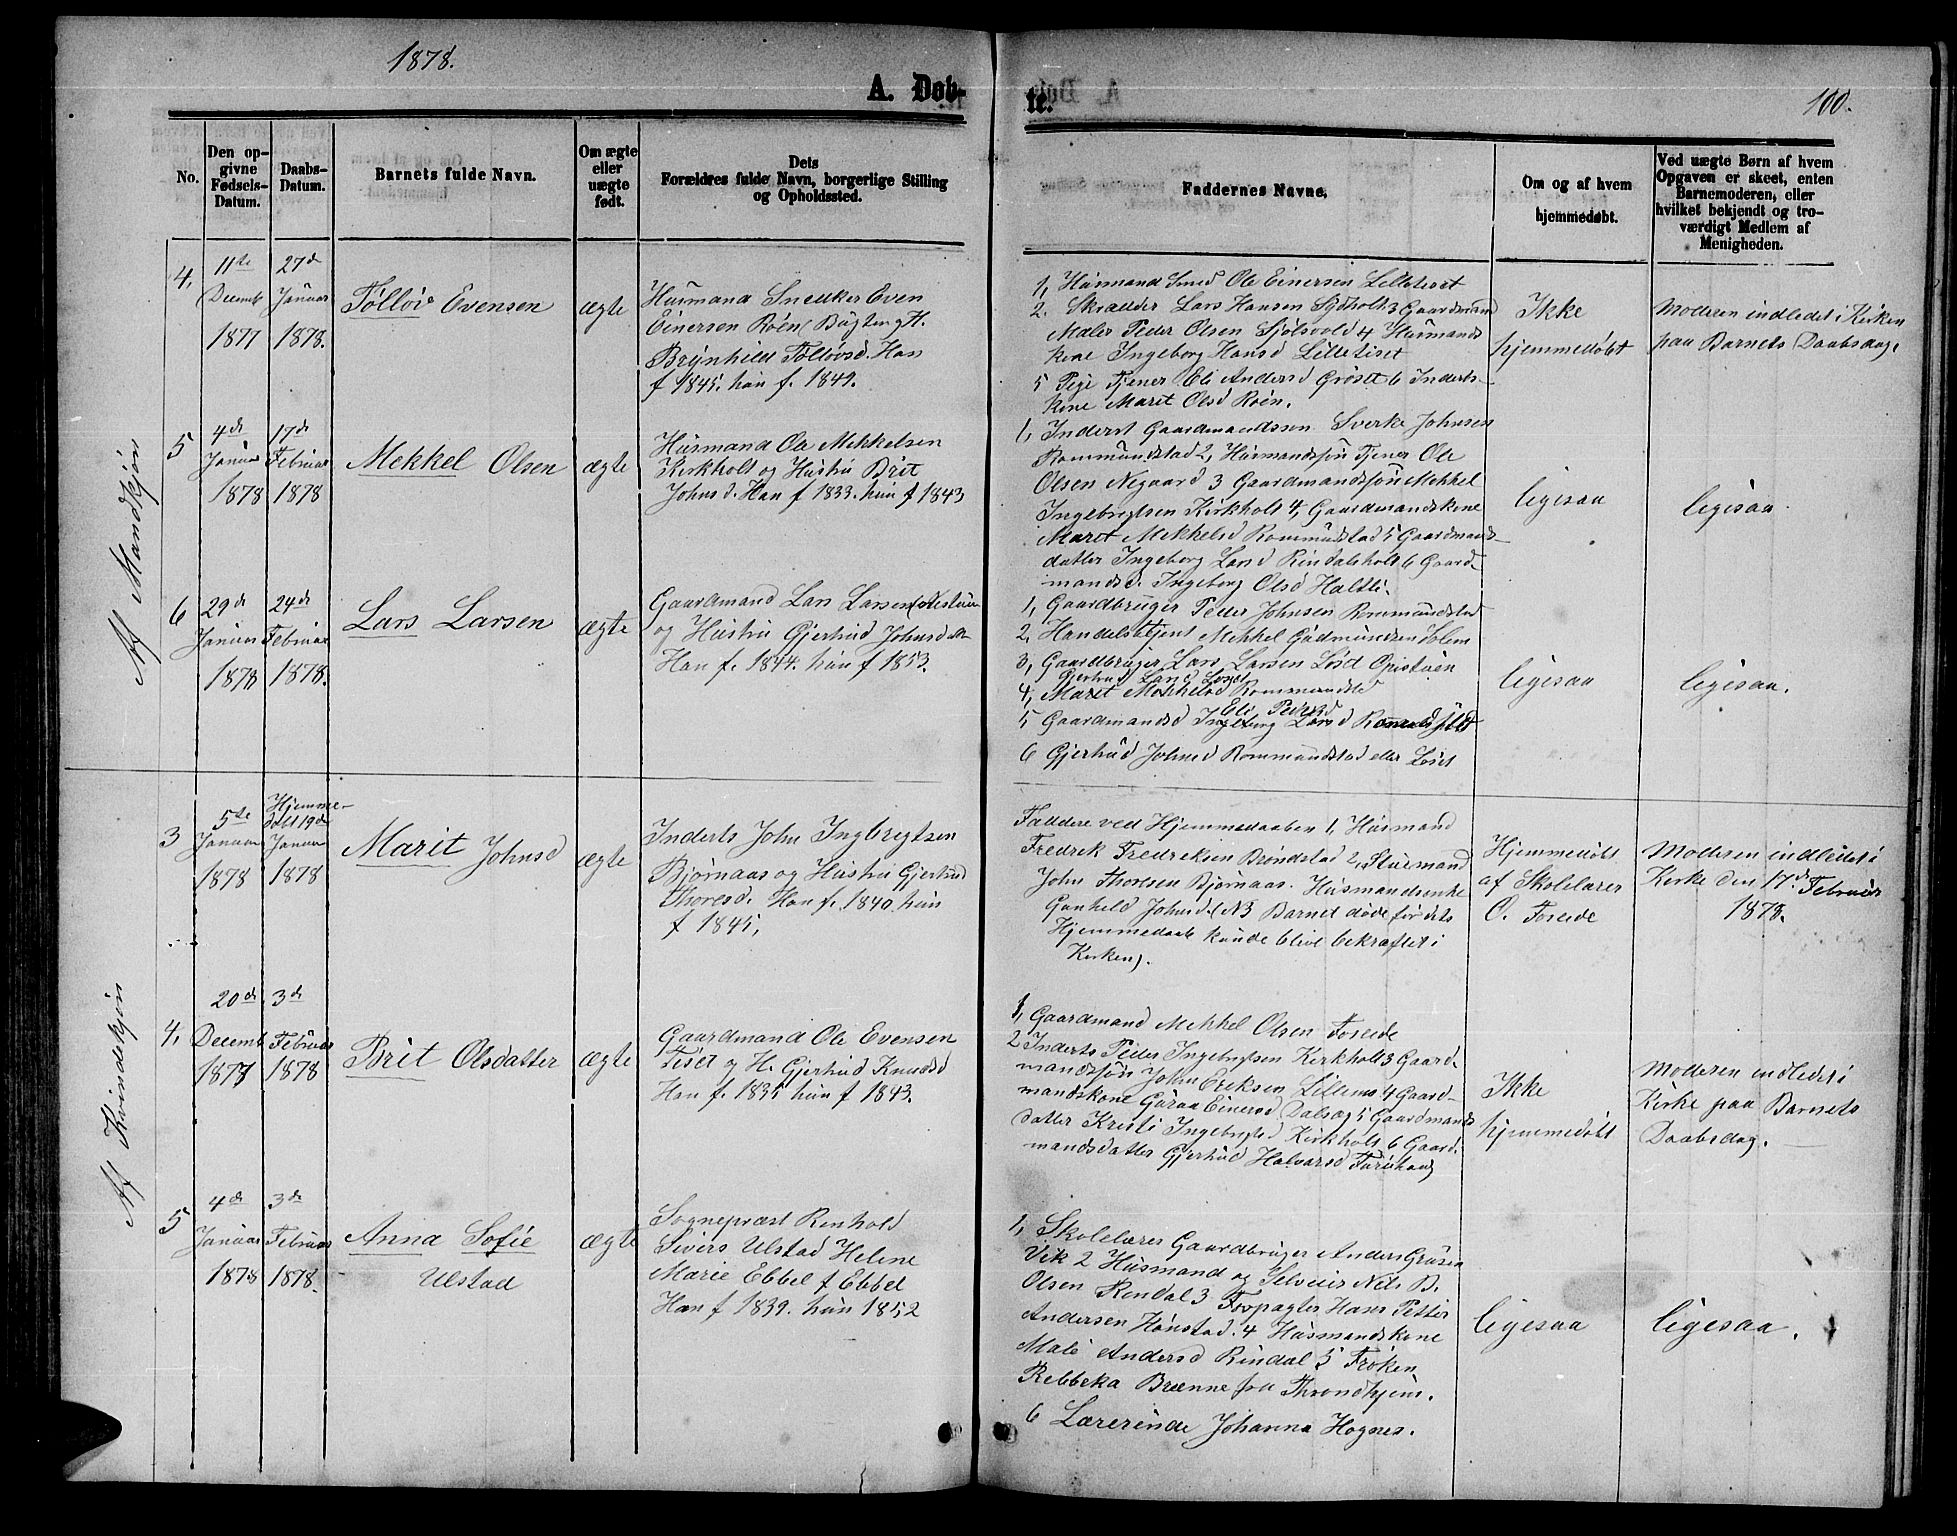 1878.
A. Døb-
te.
100.
No.
Den op-
givne
Fødsels-
Datum.
Daabs-
Datum.
Barnets fulde Navn.
Om ægte
eller
uægte
født.
Dets
Forældres fulde Navn, borgerlige Stilling
og Opholdssted.
Faddernes Navne.
Om og af hvem
hjemmedøbt.
Ved uægte Børn af hvem
Opgaven er skeet, enten
Barnemoderen, eller
hvilket bekjendt og tro-
værdigt Medlem af
Menigheden.
Af Mandkjøn
4,
11te
Decemb
1877
27d
Januar
1878.
Følløv Evensen
ægte
Husmand Snedker Even
Einersen Roen (Bugten og H.
Brynhild Følløvsd. Han
f 1845. hun f. 1849.
1, Husmand Smed Ole Einersen Lilletiset
2. Skrædder Lars Hansen Sydholt 3 Gaardmand
Maler Peder Olsen Sjølsvold 4 Husmands
kone Ingeborg Hansd Lilletiset
5 Pige Tjener Eli Andersd Grøset 6 Inderts-
kone Maret Olsd Roen.
Ikke
hjemmedøbt
Moderen indledet i Kirken
paa Barnets Daabsdag.
5
4de
Januar
1878
17d
Februar
1878
Mekkel Olsen
ægte
Husmand Ole Mekkelsen
Kirkholt og Hustru Brit
Johnsd. Han f 1833. hun f 1843
1, Inderst Gaardmandssøn Sverke Johnsen
Rommundstad 2, Husmandssøn Tjener Ole
Olsen Negaard 3 Gaardmandssøn Mekkel
Ingebrigtsen Kirkholt 4, Gaardmandskone
Maret Mekkelsd Rommundstad 5 Gaardmands-
datter Ingeborg Larsd Rindalsholt 6 Gaard-
mandsd. Ingeborg Olsd Haltli.
ligesaa
ligesaa.
6
29de
Januar
1878
24de
Februar
1878.
Lars Larsen
ægte
Gaardmand Lars Larsen
og Hustru Gjertrud Johnsd
Han f. 1844. hun f 1853.
1, Gaardbruger Peder Johnsen Rommundstad
2, Handelsbetjent Mekkel Gudmundsen Solem
3, Gaardbruger Lars Larsen Løset Opistuen
Gjertrud Larsd Løset
4, Maret Mekkelsd Rommundstad
Eli Pedersd
5 Gaardmandsd Ingeborg Larsd
6 Gjertrud Johnsd Rommundstad eller Løset
ligesaa
ligesaa.
Af Kvindekjøn
3
5te
Januar
1878
Hjemme-
døbt 19de
Januar
1878
Marit Johnsd
ægte
Inderts John Ingbregtsen
Bjørnaas og Hustru Gjertrud
Thoresd. Han f. 1840. hun
f 1845,
Faddere ved Hjemmedaaben 1, Husmand
Fredrek Fredreksen Brøndstad 2, Stuemand
John Thoresen Bjørnaas. Husmandsenke
Gunheld Johnsd. (NB Barnet døde før dets
Hjemmedaab kunde blive bekræftet i
Kirken).
Hjemmedøbt
af Skolelærer
O. Foseide
Moderen indledet i
Kirke den 17de Februar
1878.
4,
20de
Decemb
1877
3de
Februar
1878
Brit Olsdatter
ægte
Gaardmand Ole Evensen
Tiset og H. Gjertrud Knudsd
Han f. 1835 hun f 1843.
1, Gaardmand Mekkel Olsen Foseide
2 Inderts Peder Ingebrigtsen Kirkholt 3 Gaard-
mandssøn John Eriksen Lillemo 4 Gaard-
mandskone Guraa Einersd Dalsæg 5 Gaardmands
datter Kristi Ingebrigtsd Kirkholt 6 Gaard-
mandsdatter Gjertrud Halvarsd Furuhaug
Ikke
hjemmedøbt
Moderen indledet i
Kirke paa Barnets
Daabsdag.
5
4de
Januar
1878
3de
Februar
1878.
Anna Sofie
Ulstad
ægte
Sognepræst Renhold
Sivers Ulstad Helene
Marie Ebbel f Ebbel
Han f 1839. hun 1852
1, Skolelærer Gaardbruger Anders Grúsen
Vik 2 Husmand og Selveier Nels B.
Olsen Rendal 3 Forpagter Hans Petter
Andersen Hønstad. 4 Husmandskone
Male Andersd Rindal 5 Frøken
Rebbeka Brænne fra Throndhjem.
6 Lærerinde Johanna Hognes.
ligesaa
ligesaa.